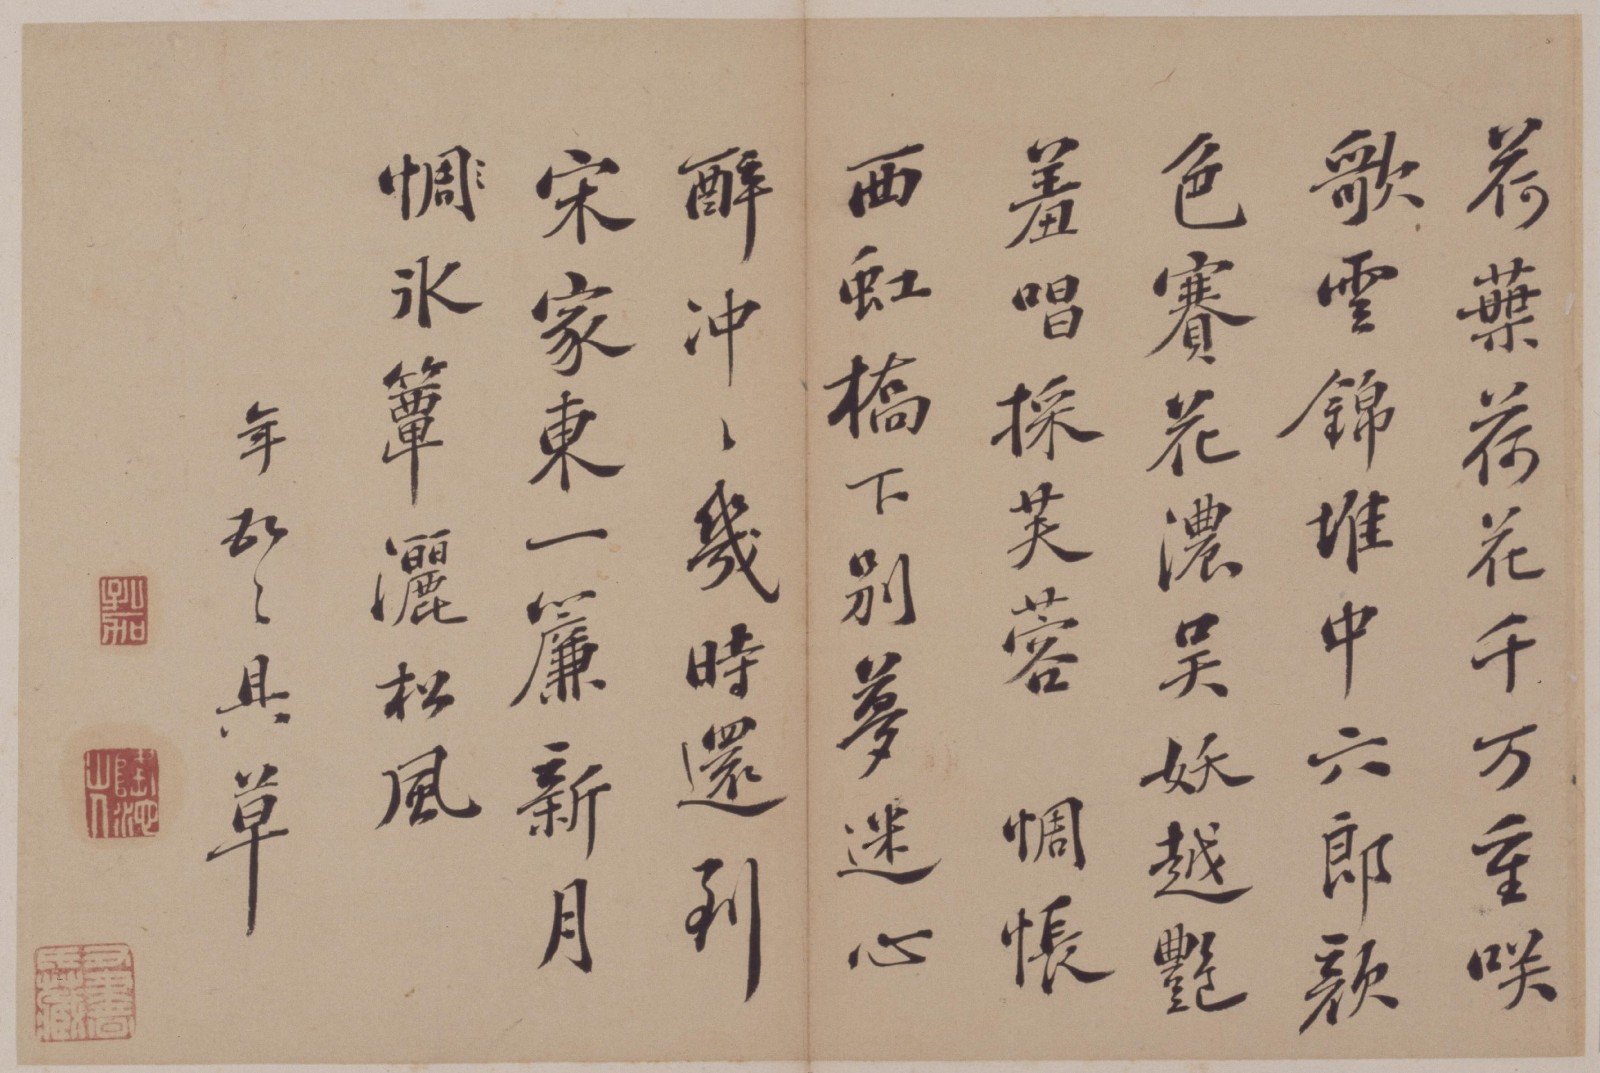 荷葉荷花千万重咲
歌雲錦堆中六郎顔
色賽花濃吴妖越艷
羞唱採芙蓉 惆悵
西虹橋下別夢迷心
醉冲〻幾時還到
宋家東一簾新月
惆〻氷簟灑松風
年弟〻具草